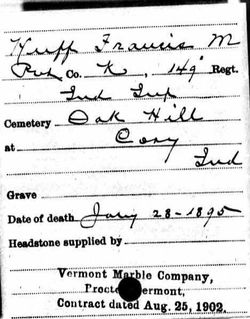 Huff Francis M
Pvt Co. K, 149" Regt.
Ind Inf
Cemetery Oak Hill
at Cory
Ind
Grave
Date of death Jany 28-1895
Headstone supplied by
Vermont Marble Company,
Procto Vermont,
Contract dated Aug. 25, 1902.